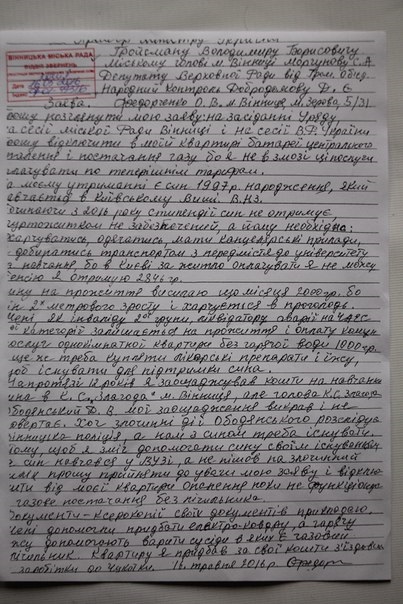 Прем'єр міністру України
ВІННИЦЬКА МІСЬКА РАДА
ВІДДІЛ ЗВЕРНЕНЬ
Дата
Гройсману Володимиру Борисовичу
Міському голові м. Вінниці Моргунову С.А.
Депутату Верховної Ради від Гром. об'єд.
Народний контроль Добродомову Д. Є
Заява. Федорченко О.В. м. Вінниця, 5/31.
розглянути мою заяву на засіданні Уряду,
на сесії міської Ради Вінниці і на сесії В.Р. України
прошу відключити в моїй квартирі батареї центрального
опалення і постачання газу бо я не в змозі ці послуги
оплачувати по теперішнім тарифам.
На моєму утриманні є син 1997 р. народження, який
навчається в Київському Вищі В.Н.З.
Починаючи з 2016 року стипендії син не отримує,
гуртожитком не забезпечений, а йому необхідно:
харчуватись, одягатись, мати канцелярські прилади,
добиратись транспортом з передмістя до університету
на навчання, бо в Києві за житло оплачувати я не можу
пенсію я отримую 2846 гр.
Сину на прожиття висилаю щомісяця 2000 гр. бо
він 2х метрового зросту і харчується в проголодь.
Мені як інваліду 2ої групи, ліквідатору аварії на ЧАЕС
категорії залишається на прожиття і оплату кому
послуг однокімнатної квартири без гарячої води 1000 гр.
ще же треба купляти лікарські препарати і їжу,
щоб існувати для підтримки сина.
На протязі 12 років я заощаджував кошти на навчання
сина в К.С. „Злагода" м. Вінниця, але голова К.С. Злагода
Ободянський Д. В. мої заощадження викрав і не
повертає. Хоч злочинні дії Ободянського розслідує
Вінницька поліція, а нам з сином треба існувати.
Тому, щоб я зміг допомагати сину своїм існуванням
син навчався у ВУЗі, а не пішов на злочинний
шлях прошу прийняти до уваги мою заяву і відклю
чити від моєї квартири опалення поки не функціонує
газове постачання без лічильника.
Документи - ксерокопії своїх документів прикладаю.
Мені допомогли придбати електро-ковдру, а гарячу
їжу допомагають варити сусіди в яких є газовий
лічильник. Квартиру я придбав за свої кошти з'їздивши
заробітки до Чукотки. 16 травня 2016 р.